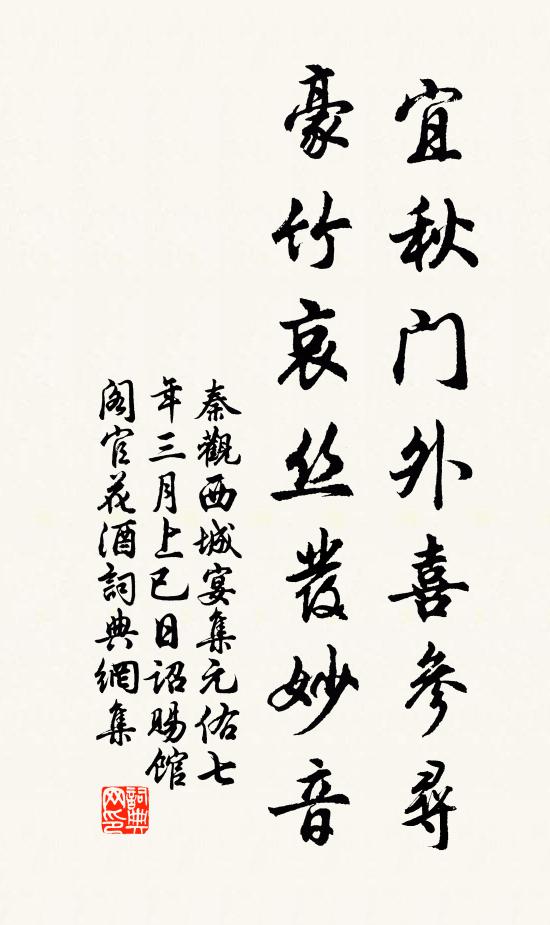 宜秋门外喜參尋
豪竹哀丝發妙音
秦觀西城宴集元佑七
年三月上巳日詔賜馆
阁官花酒詞典網集
詞典网印